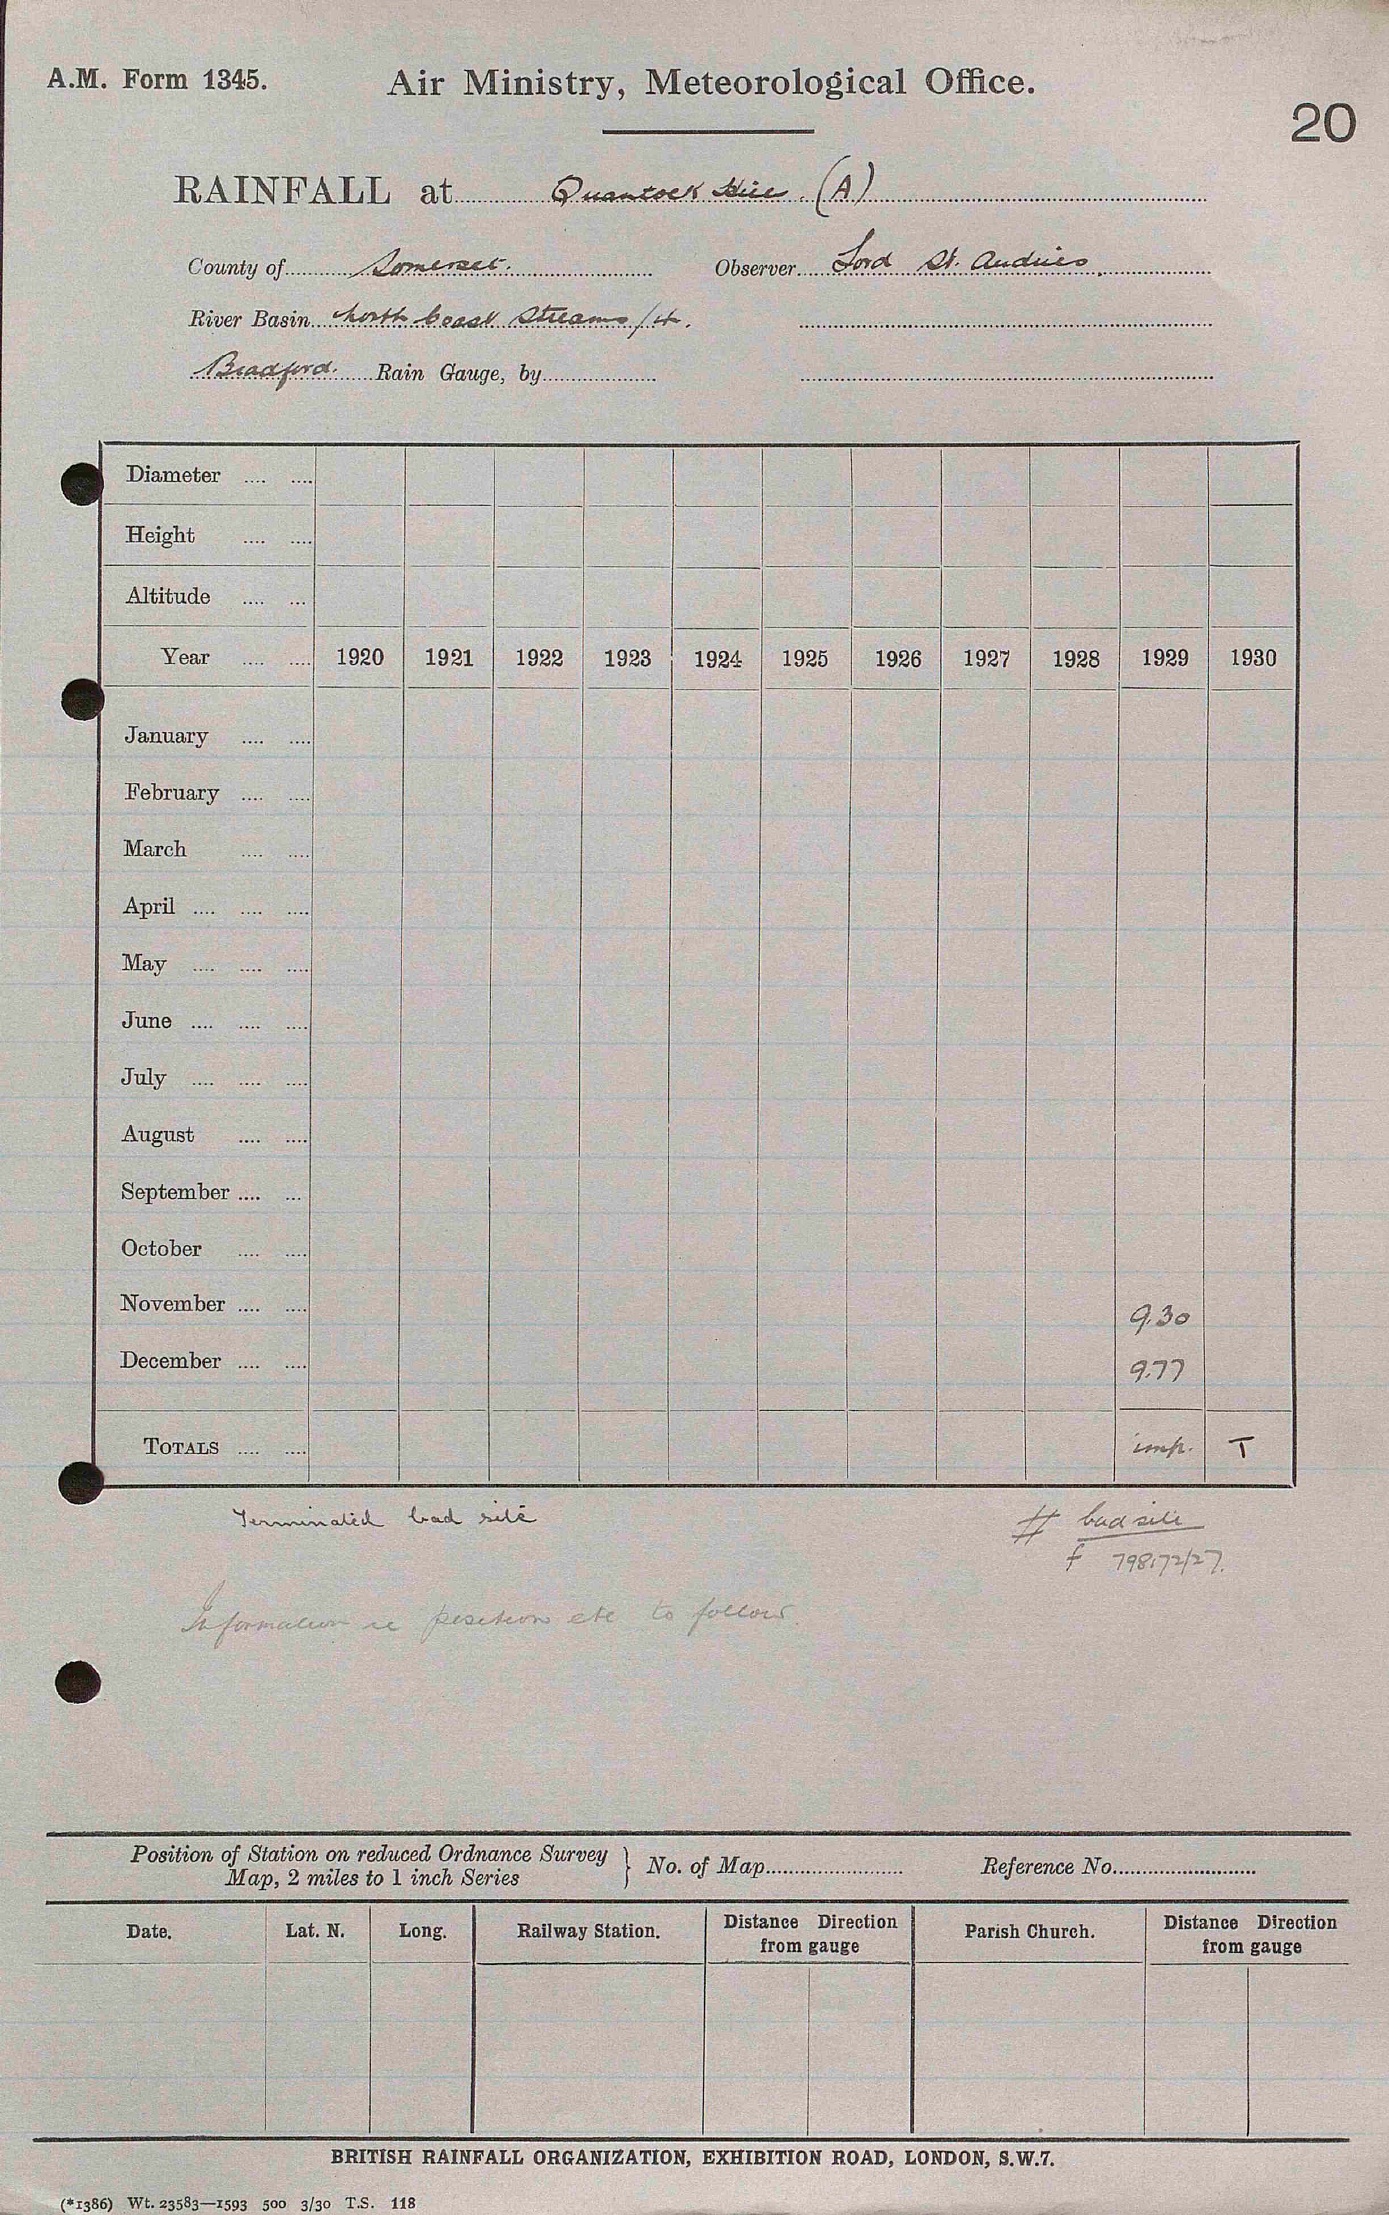 A.M. Form 1345.
Air Ministry, Meteorological Office.
20
RAINFALL at Quantock Hill. (A)
County of Somerset.
Observer Lord St. Audries.
River Basin North Coast Streams /4.
Bradford. Rain Gauge, by
Diameter
Height
Altitude
Year 1920 1921 1922 1923 1924 1925 1926 1927 1928 1929 1930
January
February
March
April
May
June
July
August
September
October
November 9.30
December 9.77
TOTALS imp. T
Terminated bad site
# bad site
f 798172/27.
Information re position etc to follow.
Position of Station on reduced Ordnance Survey
Map, 2 miles to 1 inch Series } No. of Map Reference No.
Date. Lat. N. Long. Railway Station. Distance Direction Parish Church. Distance Direction
from gauge from gauge
BRITISH RAINFALL ORGANIZATION, EXHIBITION ROAD, LONDON, S.W.7.
(*1386) Wt. 23583—1593 500 3/30 T.S. 118